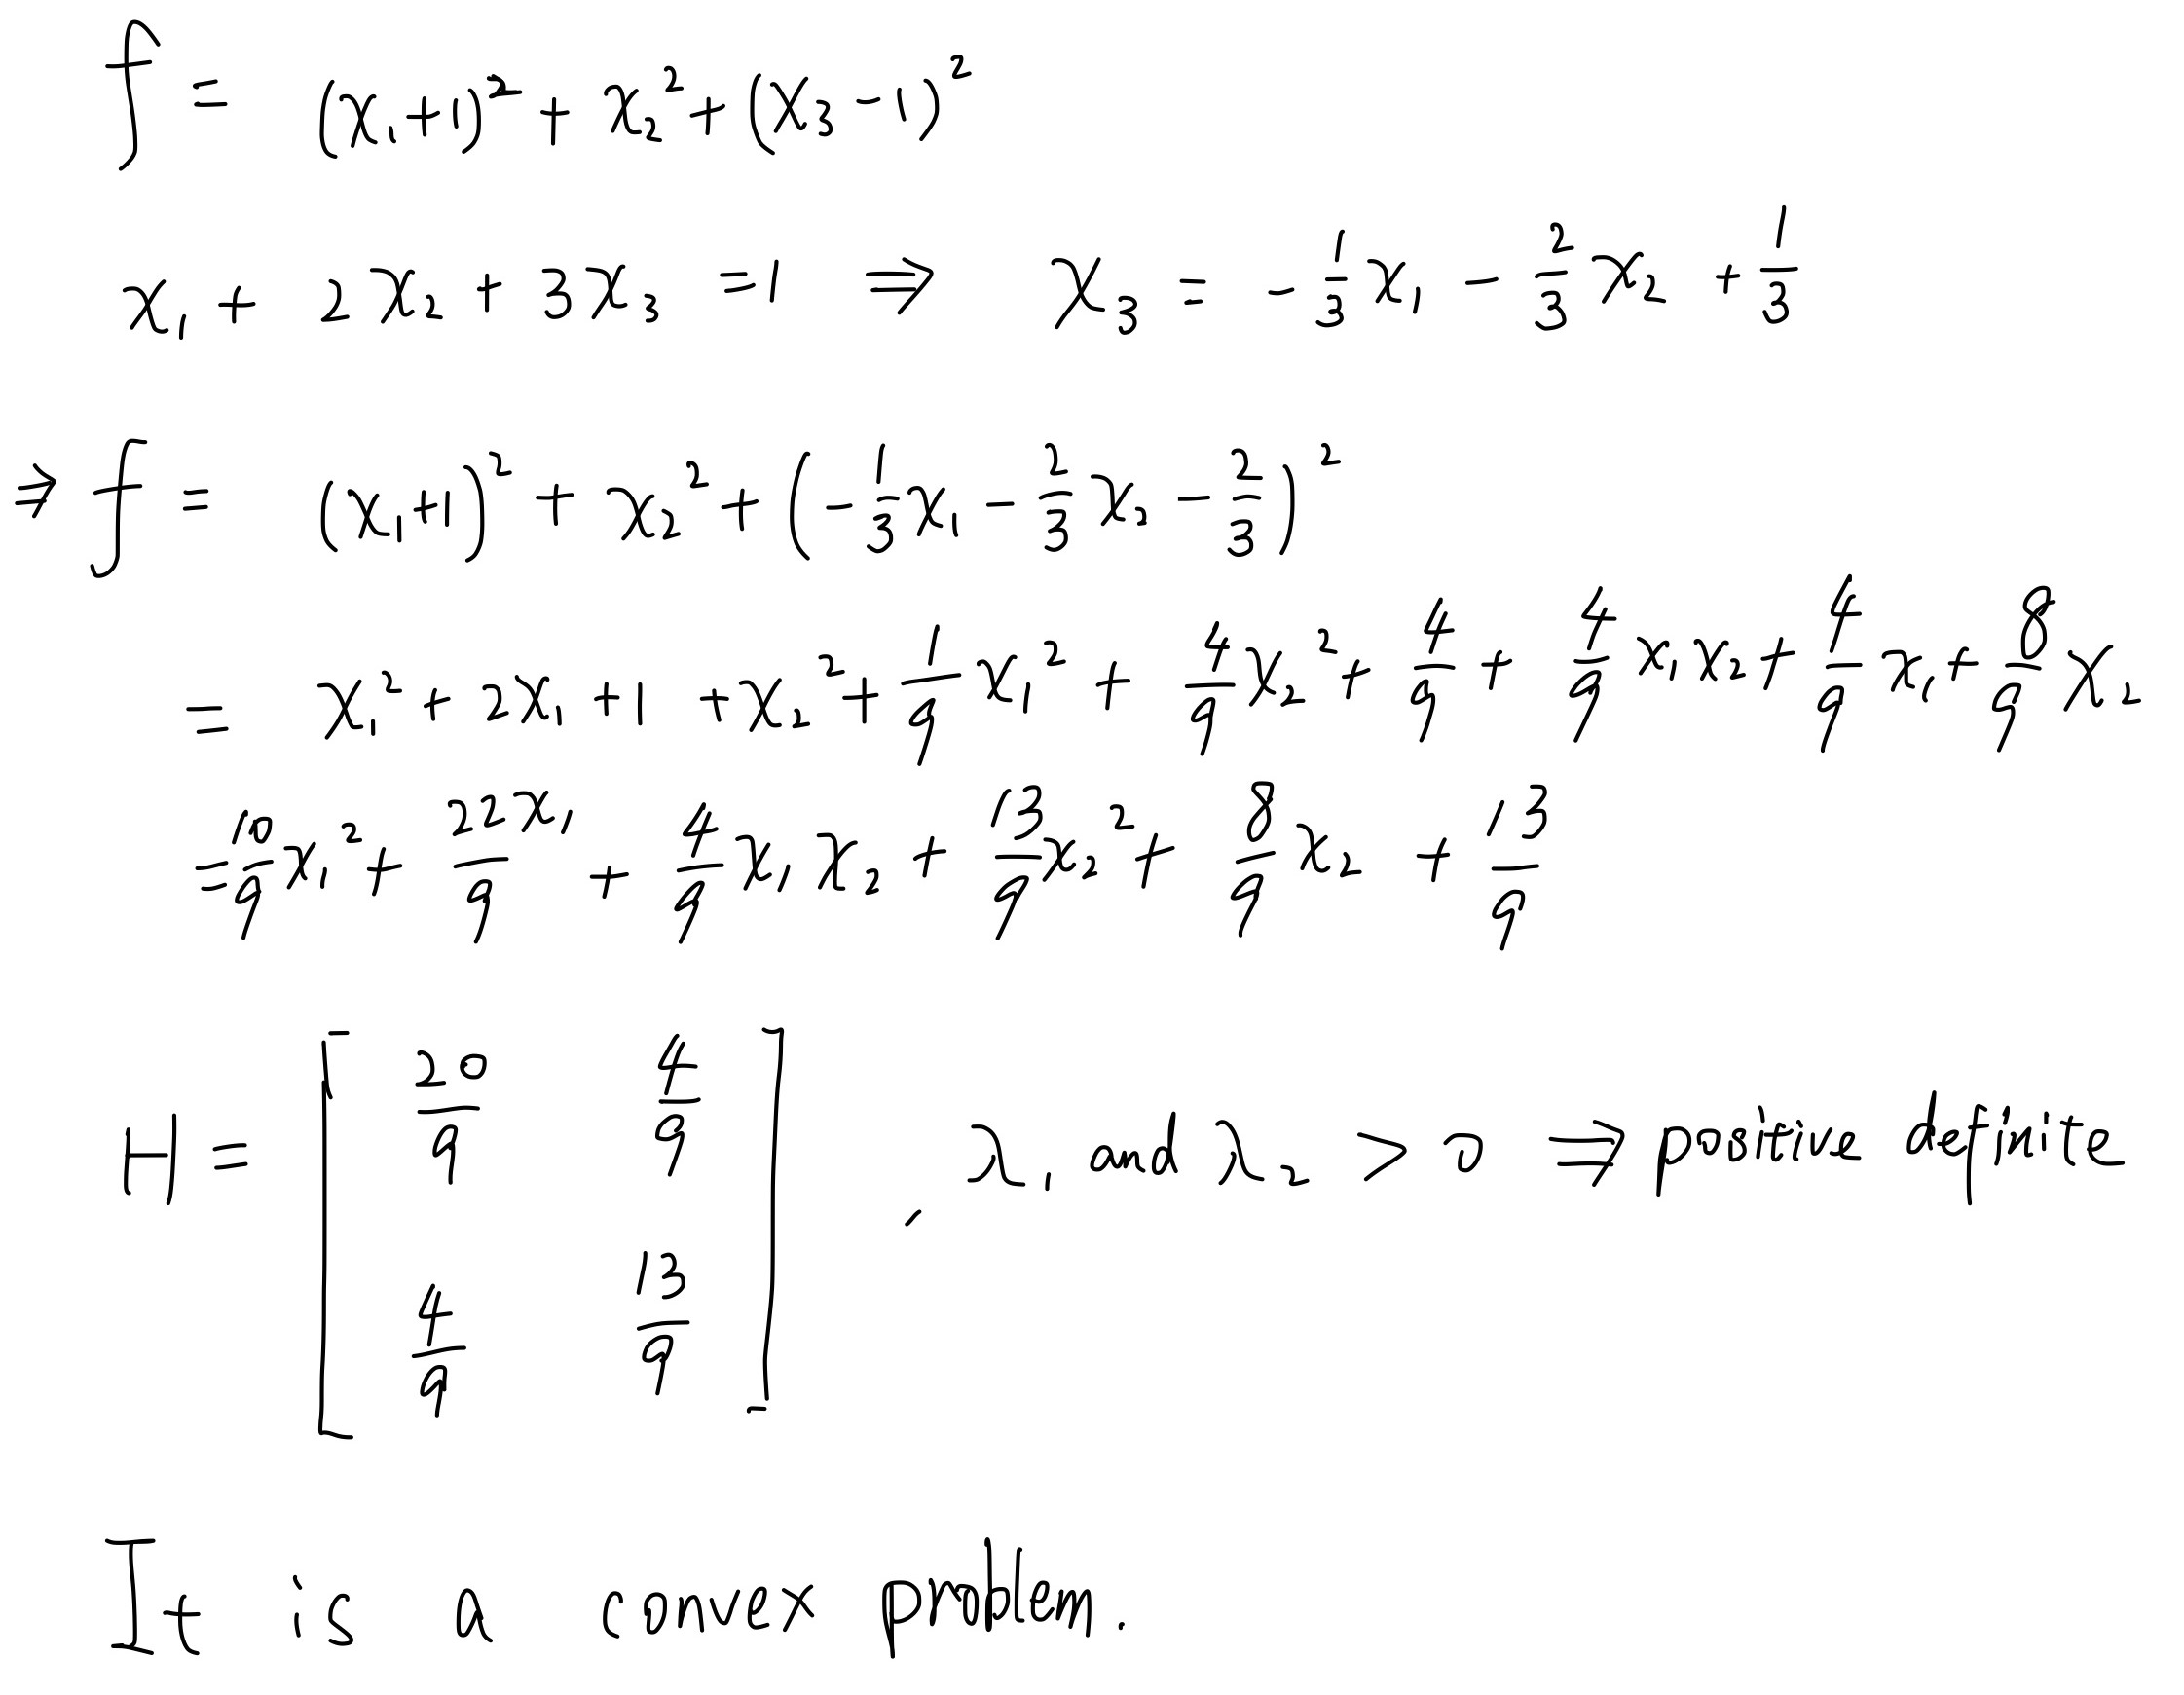 f = (x₁+1)² + x₂² + (x₃ −1)²
x₁ + 2x₂ + 3x₃ = 1 ⇒ x₃ = − 1/3 x₁ − 2/3 x₂ + 1/3
⇒ f = (x₁+1)² + x₂² + (− 1/3 x₁ − 2/3 x₂ − 2/3)²
= x₁² + 2x₁ + 1 + x₂² + 1/9 x₁² + 4/9 x₂² + 4/9 + 4/9 x₁x₂ + 4/9 x₁ + 8/9 x₂
= 10/9 x₁² + 22x₁/9 + 4/9 x₁x₂ + 13/9 x₂² + 8/9 x₂ + 13/9
H = [ 20/9 4/9 ; 4/9 13/9 ] , λ₁ and λ₂ > 0 ⇒ positive definite
It is a convex problem.